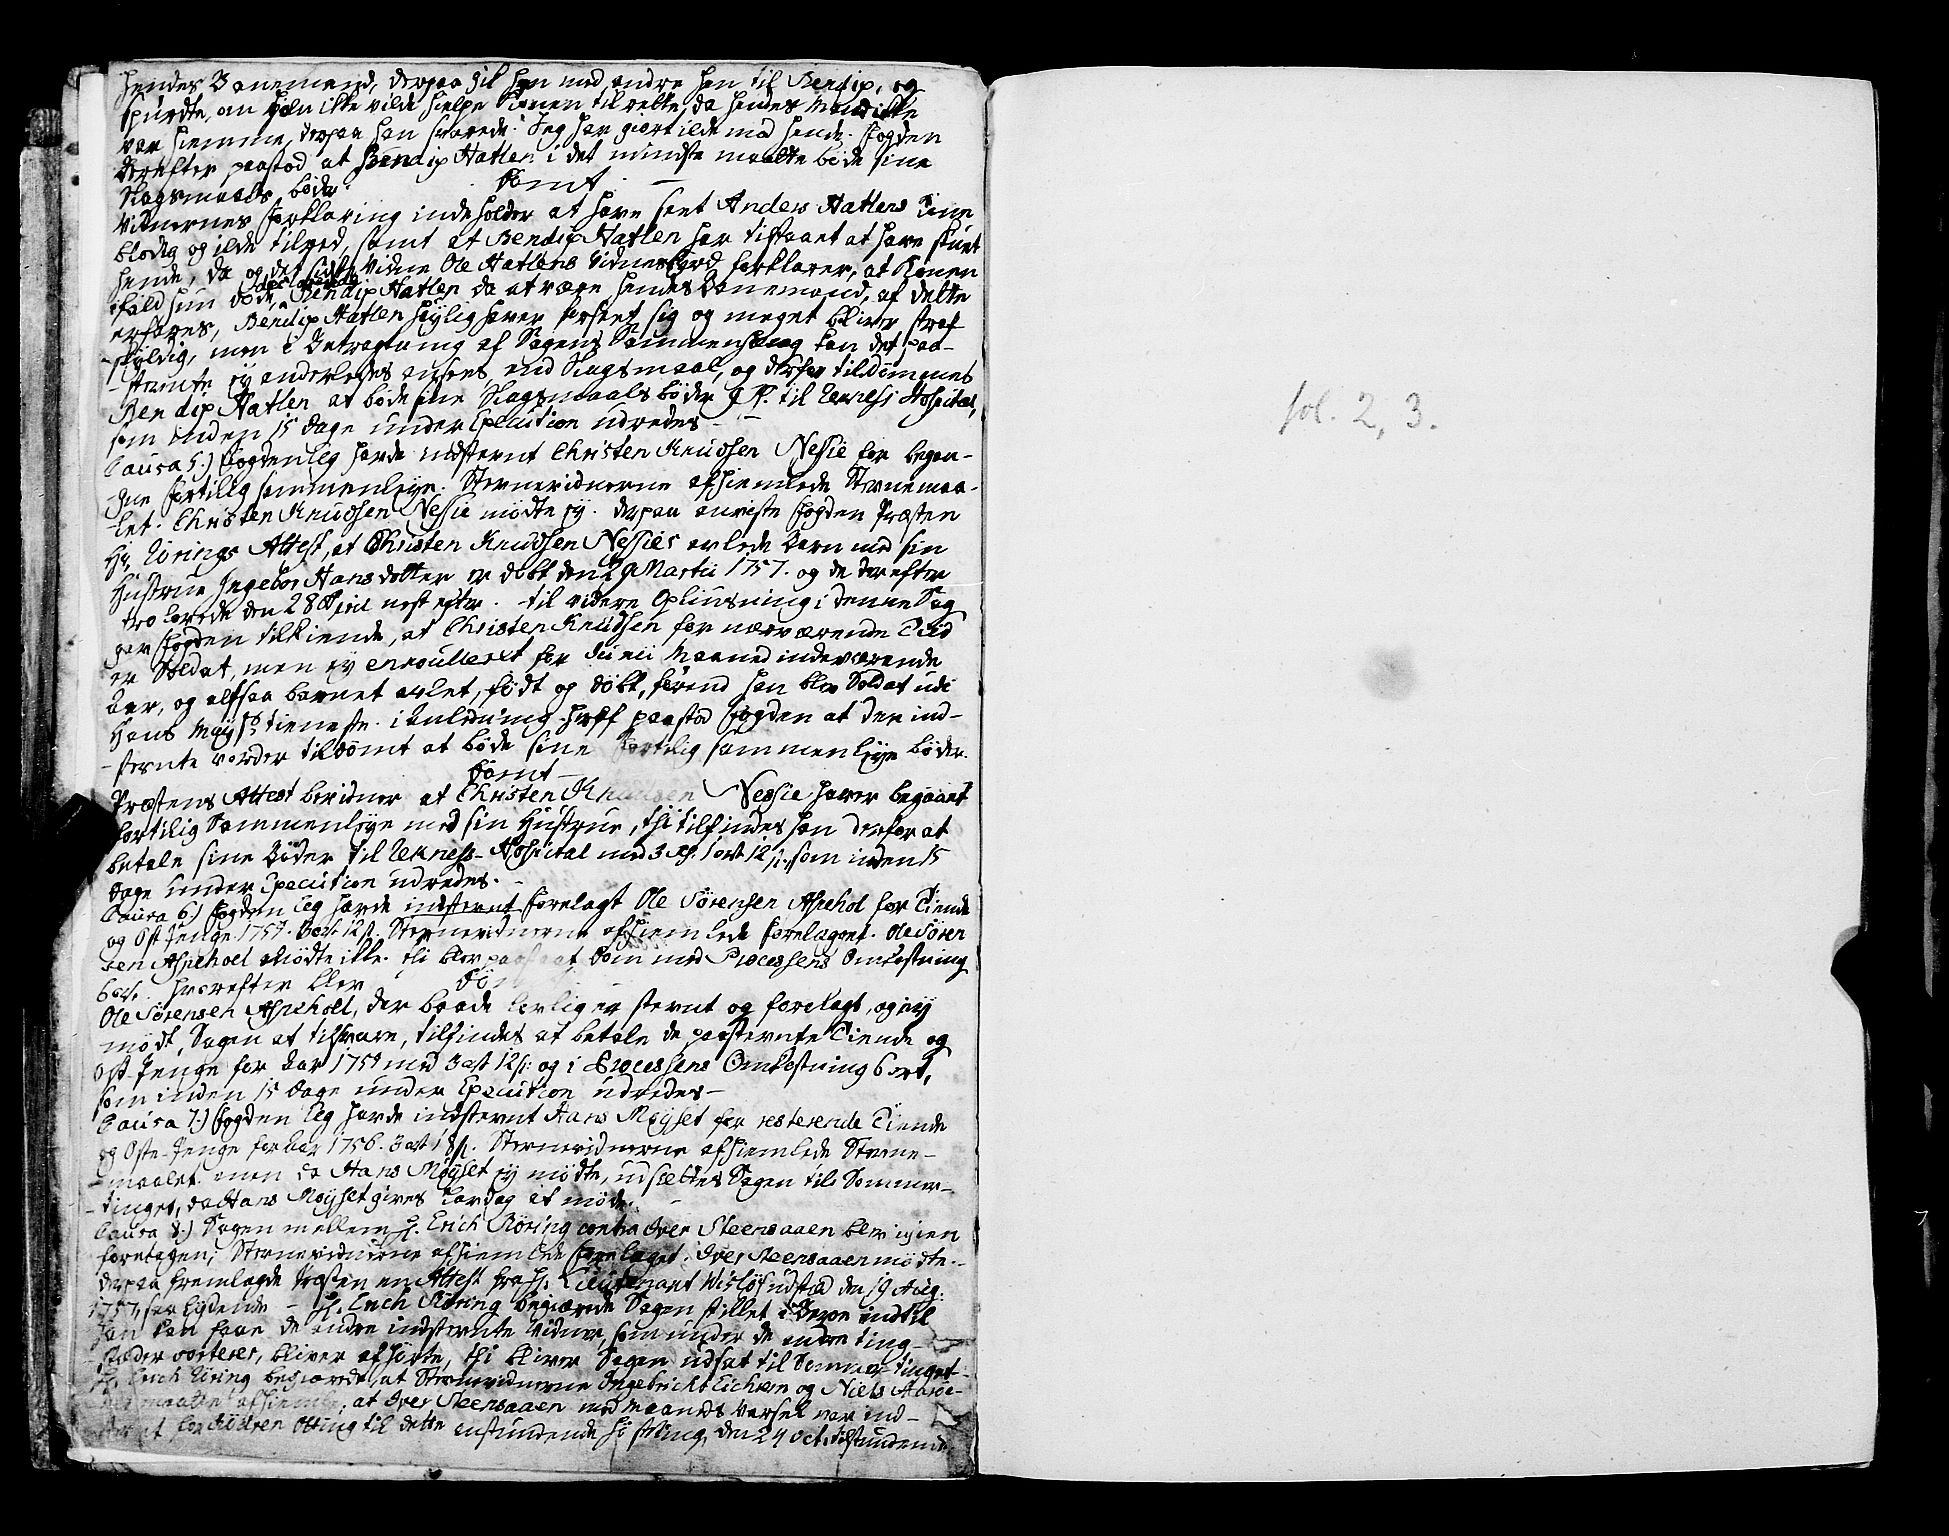 hendes Banemand, derpaa gik han med andre hen til Bendix, og
spurdte, om han ikke vilde hielpe Konen til rette, da hendes Mand ikke
var hiemme, derpaa han svarede: Jeg har giort ilde mod hende. Fogden
derefter paastod at Bendix Hatlen i det mindste maatte bøde sine
Slagsmaals bøder. Dømt
Vidnernes Forklaring indeholder at have seet Anders Hatlens Kone
blodig og ilde tilreed, samt at Bendix Hatlen har tilstaaet at have
hende, da og det sidste Vidne Ole Hatlens Vidnesbyrd forklarer, at Konen
ifald hun døde, declarerede Bendix Hatlen da at være hendes Banemand, af dette
erfares, Bendix Hatlen høylig haver forseet sig og meget bliver straf-
skyldig, men i Betragtning af Sagens Sammenhæng kan det paa-
stevnte ey anderledes ansees, end Slagsmaal, og derfor tildømmes
Bendix Hatlen at bøde sine Slagsmaals bøder 9 Rd. til Ueness Hospital,
som inden 15 dage under Execution udredes-
Causa 5.) Fogden Leg havde indstevnt Christen Knudsen Nessie for began-
gne fortilig sammenleye. Stevnevidnerne afhiemlede Stevnemaa-
let. Christen Knudsen Nessie mødte ey. derpaa anviste Fogden Præsten
Hr. Rørings Attest, at Christen Knudsen Nessies avlede Barn med sin
Hustrue Ingebor Hansdotter er døbt den 29 Martii 1757. og de derefter
trolovede den 28 April nest efter. til videre Opliusning i denne Sag
gav Fogden tilkiende, at Christen Knudsen for nærværende Tiid
er Soldat, men ey enroulleret før Junii Maaned indeværende
Aar, og altsaa barnet avlet, født og døbt, førend han blev Soldat udi
Hans Mayst. tieneste. i Anledning heraf paastod Fogden at den ind-
stevnte vorder tildømt at bøde sine fortilig sammenleye bøder.
Dømt-
Præstens Attest bevidner at Christen Knudsen Nessie haver begaaet
fortilig Sammenleye med sin Hustrue, thi tilfindes han derfor at
betale sine Bøder til Ueness-Hospital med 3 Rd. 1 ort 12 s. som inden 15
dage under Execution udredes.-
Causa 6.) Fogden Leg havde indstevnt forelagt Ole Sørensen Aspehol for Tiende
og Ost Penge 1757. 3 ort 12 s. Stevnevidnerne afhiemlede forelaget. Ole Søren
sen Aspehoel mødte ikke. thi blev paastaaet Dom med Processens Omkostning
6 ort. hvorefter blev Dømt
Ole Sørensen Aspehoel, der baade lovlig er stevnt og forelagt, og ey
mødt, Sagen at tilsvare, tilfindes at betale de paastevnte Tiende og
Ost-Penge for Aar 1757 med 3 ort 12 s: og i Processens Omkostning 6 ort,
som inden 15 dage under Execution udredes-
Causa 7.) Fogden Leg havde indstevnt Hans Møyset for resterende Tiende
og Oste-Penge for Aar 1756. 3 ort 18 s. Stevnevidnerne afhiemlede Stevne-
maalet. men da Hans Møyset ey mødte, udsettes Sagen til Sommer-
tinget, da Hans Møyset gives Lavdag at møde.
Causa 8.) Sagen mellem Hr. Erich Røring contra Iver Steensaaen blev igien
foretagen; Stevnevidnerne afhiemlede forelaget. Iver Steensaaen mødte.-
derpaa fremlagde Præsten en Attest fra Hr. Lieutenant Wisløf udstæd den 19 Aug:
1757, saa lydende - Hr. Erich Røring begiærede Sagen stillet i Beroe indtil
han kan faae de andre indstevnte Vidner, som under de andre ting-
stæder sorterer, bliver afhørte, thi bliver Sagen udsat til Sommer-tinget-
Hr. Erich Røring begiærede, at Stevnevidnerne Ingebricht Eichrem og Niels Aarøe-
maatte afhiemle, at Iver Steensaaen med Maaneds Varsel var ind-
stevnt for Rødven Otting til dette anstundende høstting, den 24 Oct. tilstundende
fol. 2, 3.